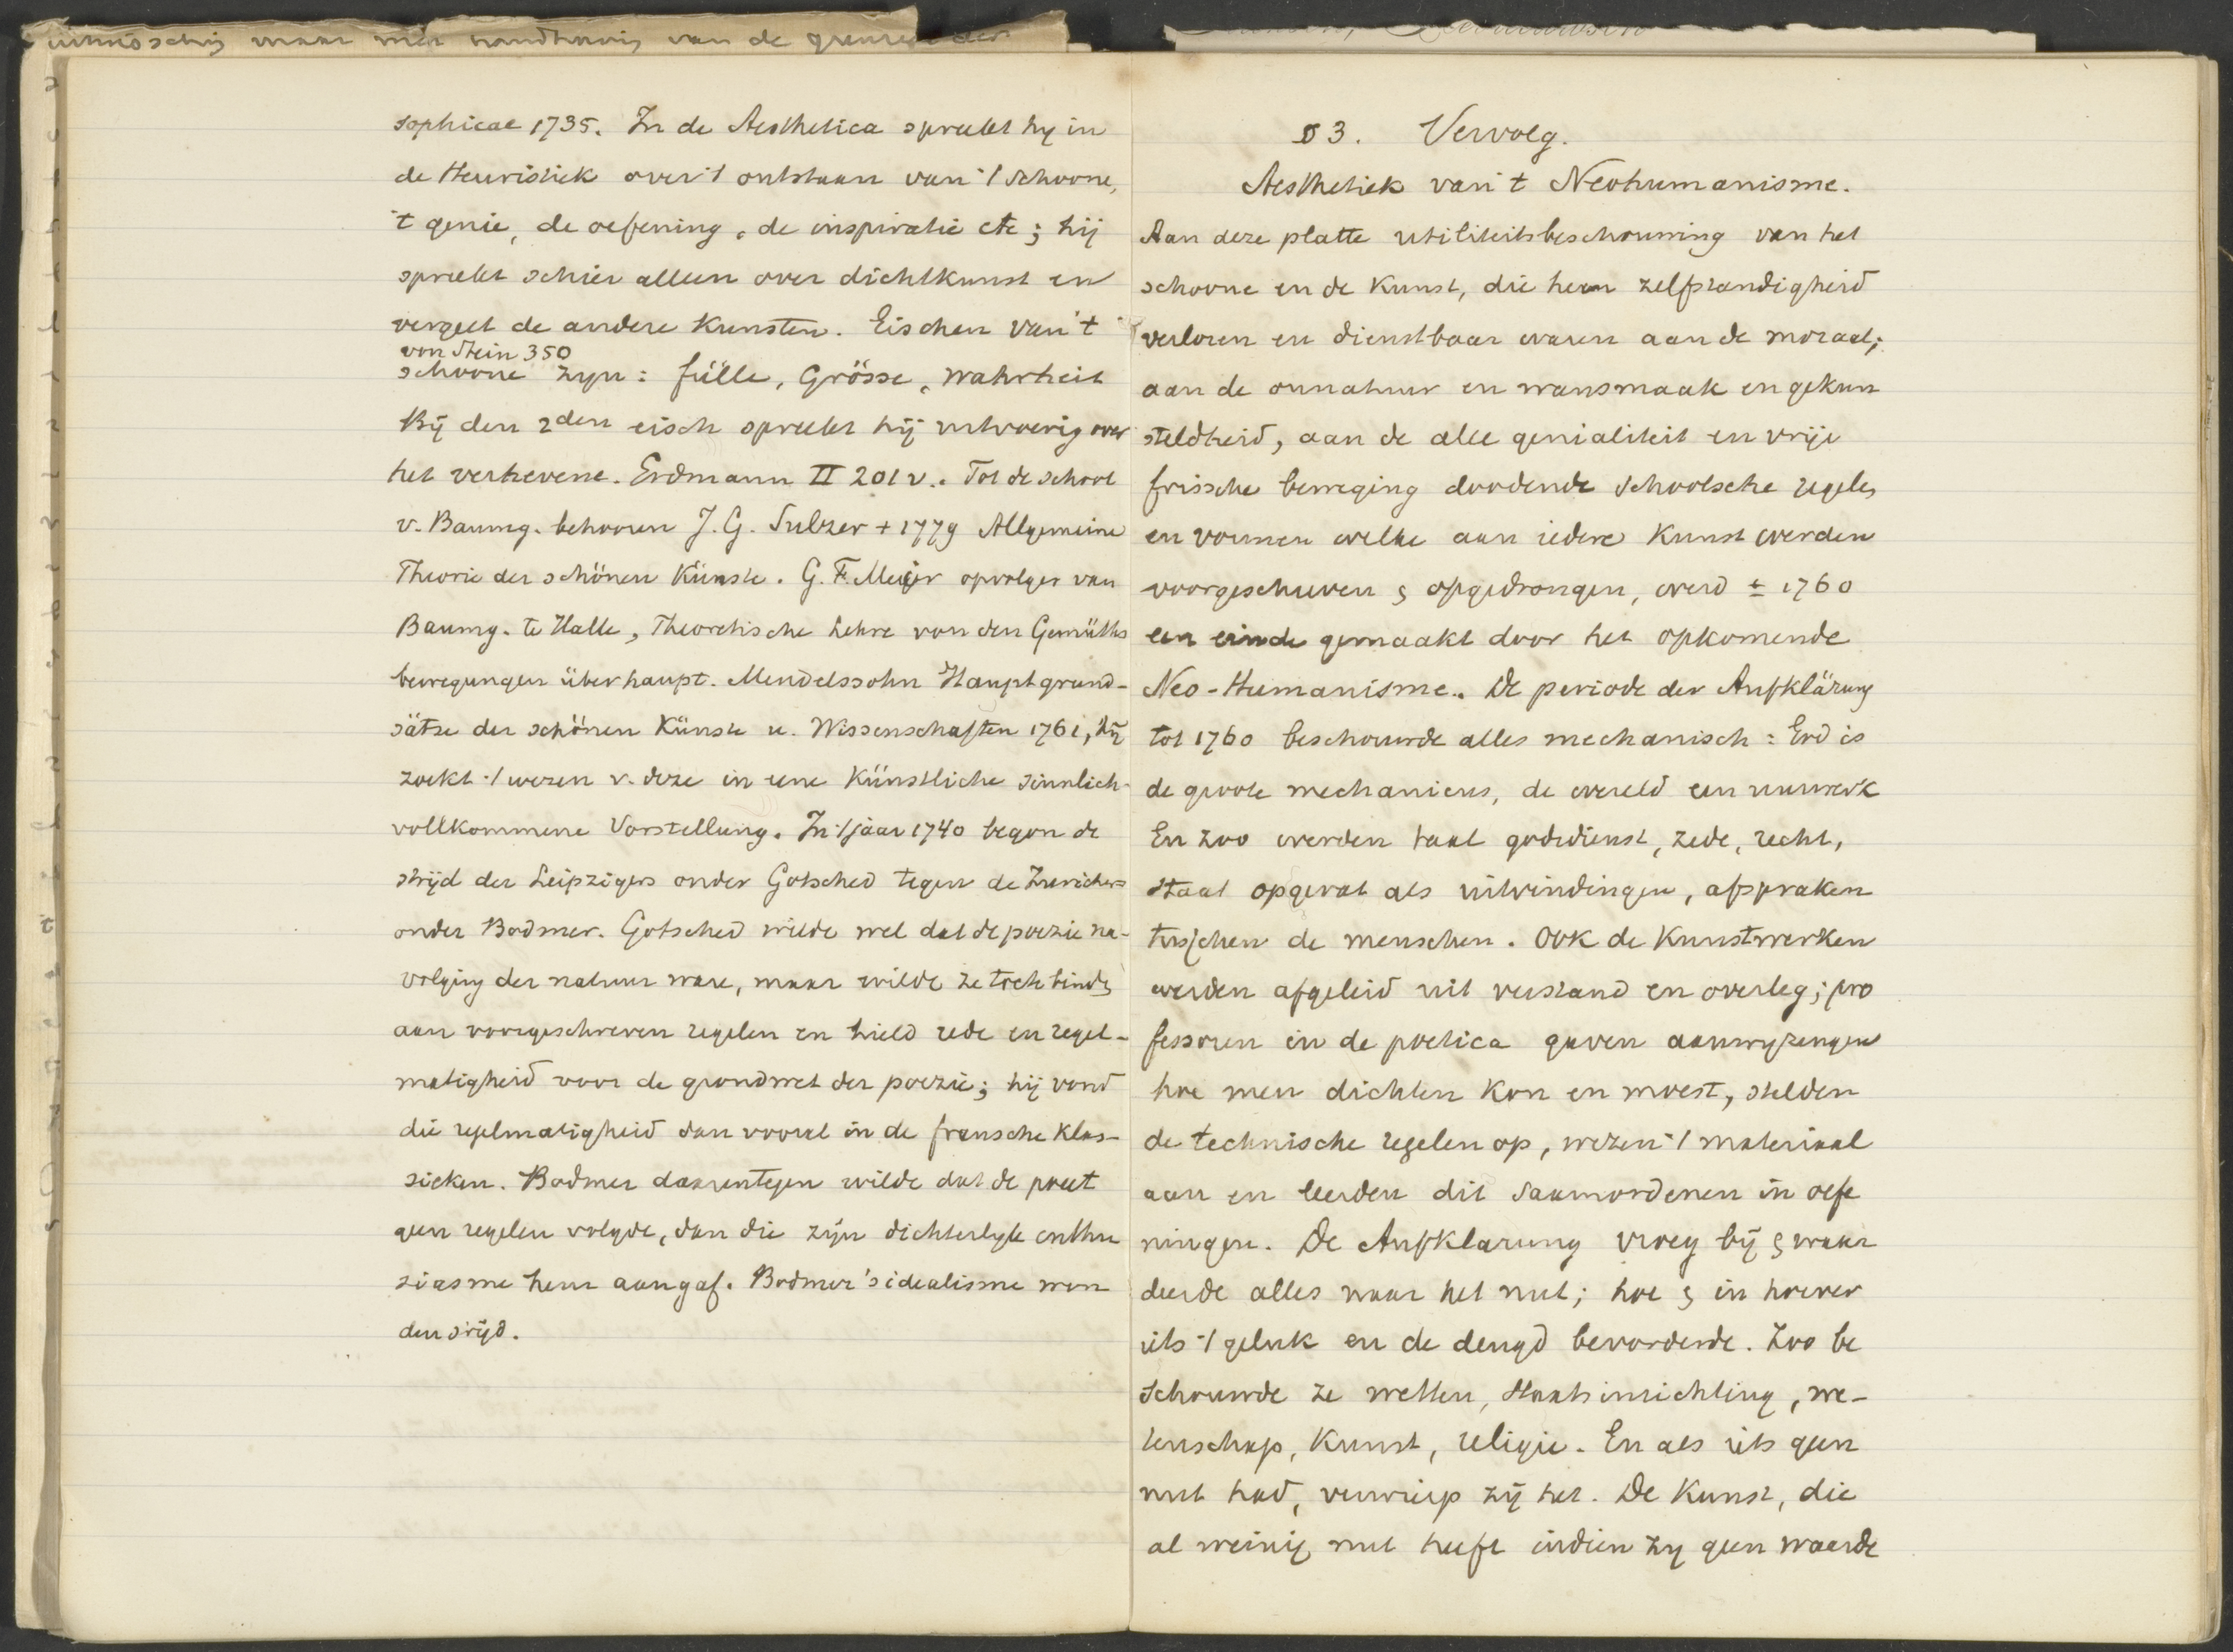 sophicae 1735. In de Aesthetica spreekt hy in
de Heuristiek over 't ontstaan van 't schoone,
't genie, de oefening, de inspiratie etc; hij
spreekt schier alleen over dichtkunst en
vergeet de andere kunsten. Eischen van 't
von Stein 350
schoone zyn: fülle, Grösse, Wahrheit
Bij den 2den eisch spreekt hij uitvoerig over
het verhevene. Erdmann II 201 v.. Tot de school
v. Baumg. behooren J. G. Sulzer + 1779 Allgemeine
Theorie der schönen Künste. G. F. Meijer opvolger van
Baumg. te Halle, Theoretische Lehre von den Gemüths
bewegungen überhaupt. Mendelssohn Hauptgrund-
sätze der schönen Künste u. Wissenschaften 1761, hij
zoekt 't wezen v. deze in eene Künstliche sinnlich-
vollkommene Vorstellung. In 't jaar 1740 begon de
strijd der Leipzigers onder Gotsched tegen de Zurichers
onder Bodmer. Gotsched wilde wel dat de poezie na-
volging der natuur ware, maar wilde ze toch binden
aan voorgeschreven regelen en hield rede en regel-
matigheid voor de grondwet der poezie; hij vond
die regelmatigheid dan vooral in de fransche klas-
sieken. Bodmer daarentegen wilde dat de poeet
geen regelen volgde, dan die zijn dichterlyk enthu
siasme hem aangaf. Bodmer's idealisme won
den strijd.
§ 3. Vervolg.
Aesthetiek van 't Neohumanisme.
Aan deze platte utiliteitsbeschouwing van het
schoone en de Kunst, die hun zelfstandigheid
verloren en dienstbaar waren aan de moraal;
aan de onnatuur en wansmaak en gekun
steldheid, aan de alle genialiteit en vrije
frissche beweging doodende schoolsche regels
en vormen welke aan iedere Kunst werden
voorgeschreven & opgedrongen, werd ± 1760
een einde gemaakt door het opkomende
Neo-Humanisme. De periode der Aufklärung
tot 1760 beschouwde alles mechanisch: God is
de groote mechanicus, de wereld een uurwerk
En zoo werden taal godsdienst, zede, recht,
staat opgevat als uitvindingen, afspraken
tusschen de menschen. Ook de Kunstwerken
werden afgeleid uit verstand en overleg; pro
fessoren in de poetica gaven aanwyzingen
hoe men dichten kon en moest, stelden
de technische regelen op, wezen 't materiaal
aan en leerden dit saamordenen in oefe
ningen. De Aufklarung vroeg bij & waar
deerde alles naar het nut; hoe & in hoever
iets 't geluk en de deugd bevorderde. Zoo be
schouwde ze wetten, staatsinrichting, we-
tenschap, Kunst, religie. En als iets geen
nut had, verwierp zij het. De Kunst, die
al weinig nut heeft indien zy geen waarde